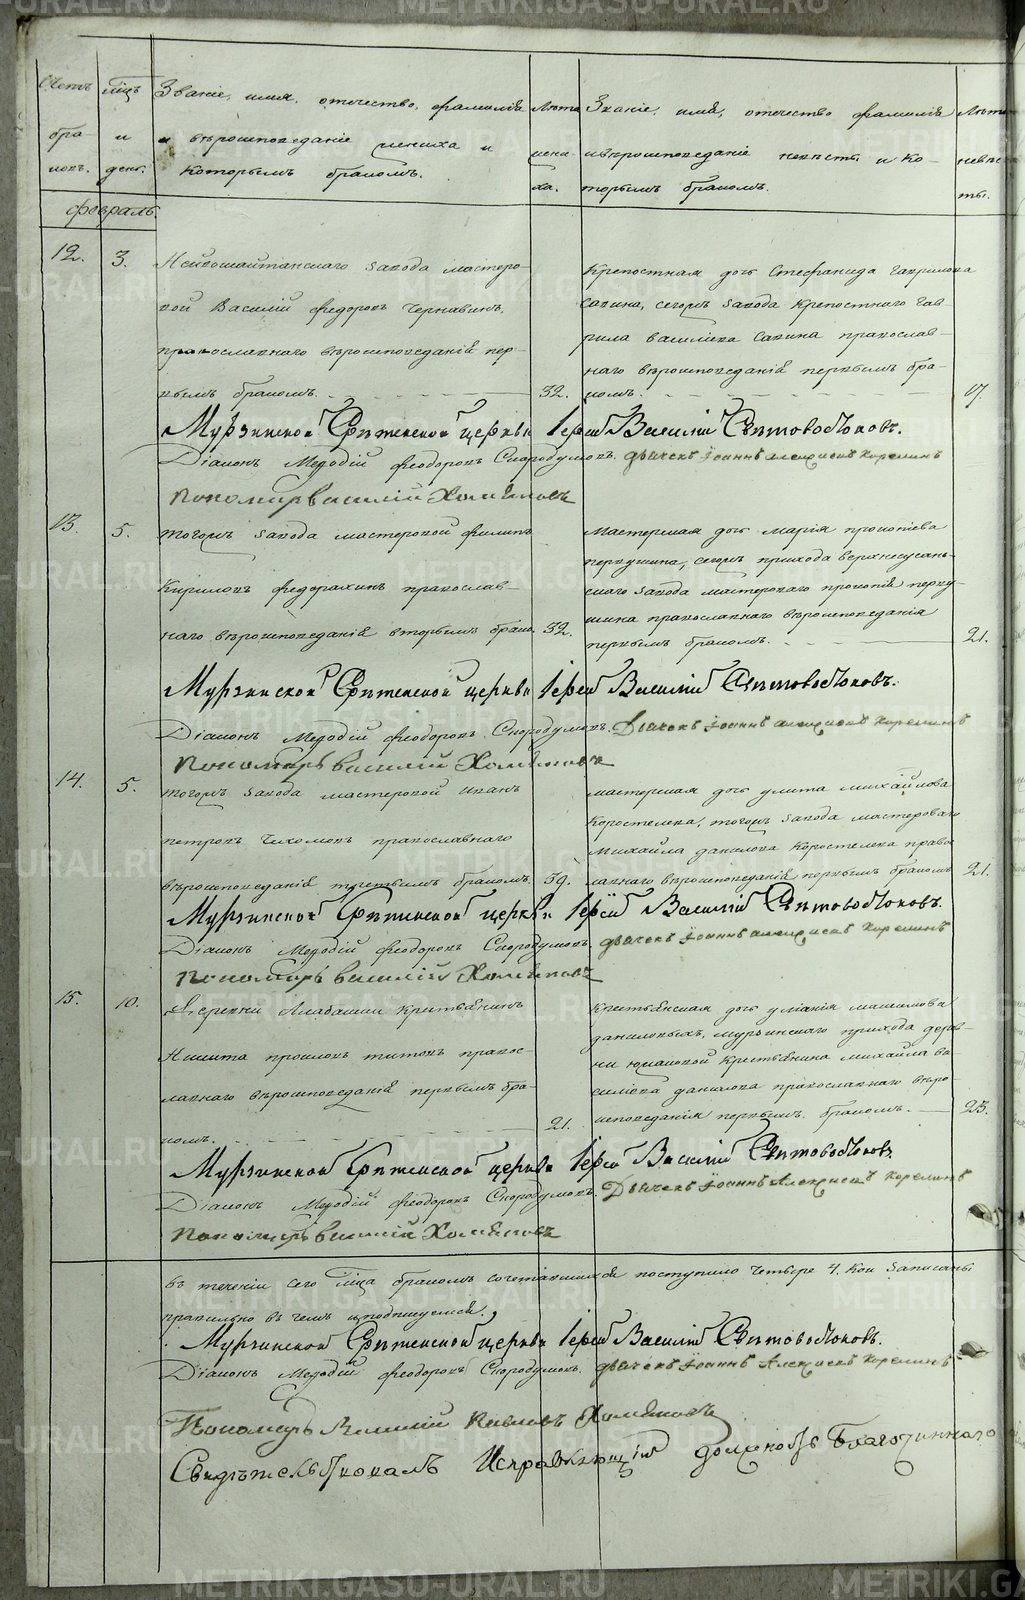 METRIKI.GASO-URAL.RU
Счетъ бра- ковъ.
Мѣц и день.
Званіе, имя, отечество, фамилія
и вѣроисповѣданіе жениха и
которымъ бракомъ.
Лѣта жени- ха.
Званіе, имя, отечество фамилія
и вѣроисповѣданіе невѣсты и ко-
торымъ бракомъ.
Лѣта невѣс- ты.
Февраль.
12. 3.
Нейвошайтанскаго завода мастеро-
вой Василій Федоровъ Чернавинъ,
православнаго вѣроисповѣданія пер-
вымъ бракомъ. 32.
Крепостная дочь Стефанида Гаврилова
Савина, сегожъ завода Крепостного Гав-
рила Василіева Савина православ-
наго вѣроисповѣданія первымъ бра-
комъ. 17.
Мурзинской Срѣтенской церкви Іерей Василій Свѣтовостоковъ.
Діаконъ Меѳодій Феодоровъ Скородумовъ. Дьячекъ Іоаннъ Алексиевъ Корелинъ
Пономарь Василій Хомяковъ
13. 5.
тогожъ завода мастеровой Филипъ
Кириловъ Федорахинъ православ-
наго вѣроисповѣданія вторымъ брако. 32.
Мастерская дочь Марія прокопіева
первушина, сегожъ прихода верхнесусань-
скаго завода мастероваго прокопія перву-
шина православнаго вѣроисповѣданія
первымъ бракомъ. 21.
Мурзинской Срѣтенской церкви Іерей Василій Свѣтовостоковъ.
Діаконъ Меѳодій Феодоровъ Скородумовъ. Дьячекъ Іоаннъ Алексиевъ Корелинъ
Пономарь Василій Хомяковъ
14. 5.
тогожъ завода мастеровой Иванъ
петровъ Чихомовъ православнаго
вѣроисповѣданія третьимъ бракомъ. 59.
мастерская дочь улита михайлова
Коростелева, тогожъ завода мастероваго
Михайла данилова Коростелева право
лавнаго вѣроисповѣданія первымъ бракомъ 21.
Мурзинской Срѣтенской церкви Іерей Василій Свѣтовостоковъ.
Діаконъ Меѳодій Феодоровъ Скородумовъ. Дьячекъ Іоаннъ Алексиевъ Корелинъ
Пономарь Василій Хомяковъ
15. 10.
Деревни Алабашки Крестьянинъ
Никита проковъ титовъ правос-
лавнаго вѣроисповѣданія первымъ бра-
комъ. 21.
Крестьянская дочь уліанія
даниловыхъ, мурзинскаго прихода дерев-
ни южаковой Крестьянина михайла ва-
силіева данилова православнаго вѣро-
исповѣданія первымъ бракомъ. 23.
Мурзинской Срѣтенской церкви Іерей Василій Свѣтовостоковъ
Діаконъ Меѳодій Феодоровъ Скородумовъ. Дьячекъ Іоаннъ Алексиевъ Корелинъ
Пономарь Василій Хомяковъ
въ теченіи сего Мѣца бракомъ сочетавшихся поступило Четыре 4. Кои записаны
правильно въ чемъ и подпишуемся.
Мурзинской Срѣтенской церкви Іерей Василій Свѣтовостоковъ.
Діаконъ Меѳодій Феодоровъ Скородумовъ. Дьячекъ Іоаннъ Алексиевъ Корелинъ
Пономарь Василій Павловъ Хомяковъ
Свидѣтельствовалъ Исправляющій должность Благочиннаго